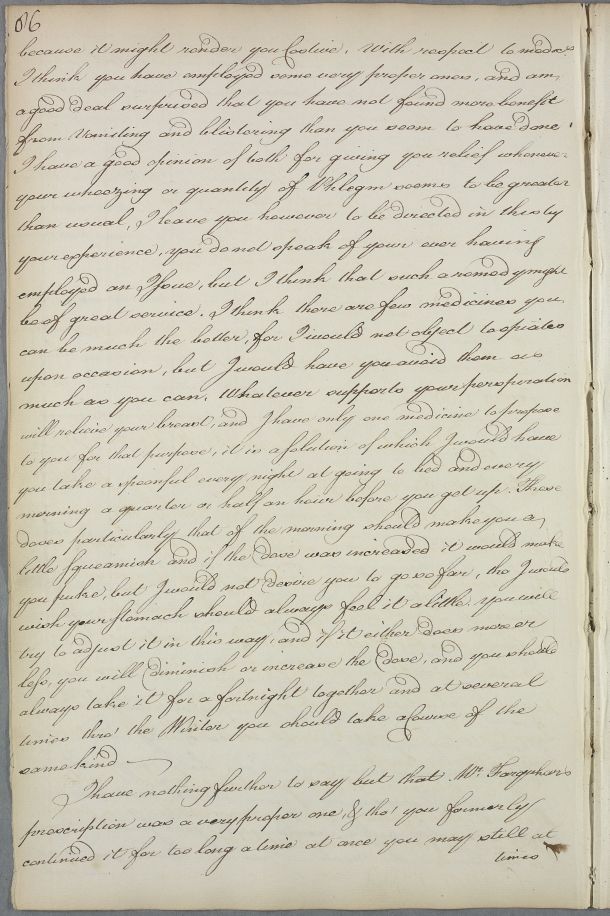 86
because it might render you Costive. With respect to medes
I think you have employed some very proper ones, and am
a good deal surprised that you have not found more benefit
from Vomiting and blistering than you seem to have done.
I have a good opinion of both for giving you relief whenever
your wheezing or quantity of Phlegm seems to be greater
than usual, I leave you however to be directed in this by
your experience, you do not speak of your ever having
employed an Issue, but I think that such a remedy might
be of great service. I think there are few medicines you
can be much the better, for I would not object to opiates
upon occasion, but I would have you avoid them as
much as you can. Whatever supports your perspiration
will relieve your breast, and I have only one medicine to propose
to you for that purpose, it is a Solution of which I would have
you take a spoonful every night at going to bed and every
morning a quarter or half an hour before you get up. These
doses particularly that of the morning should make you a
little squeamish and if the Dose was increased it would make
you puke, but I would not desire you to go so far, tho I would
wish your stomach should always feel it a little. You will
try to adjust it in this way, and if it either does more or
less, you will diminish or increase the Dose, and you should
always take it for a fortnight together and at several
times thro' the Winter you should take a Course of the
same kind
I have nothing further to say but that Mr. Farquhar's
prescription was a very proper one, & tho' you formerly
continued it for too long a time at once you may still at
times